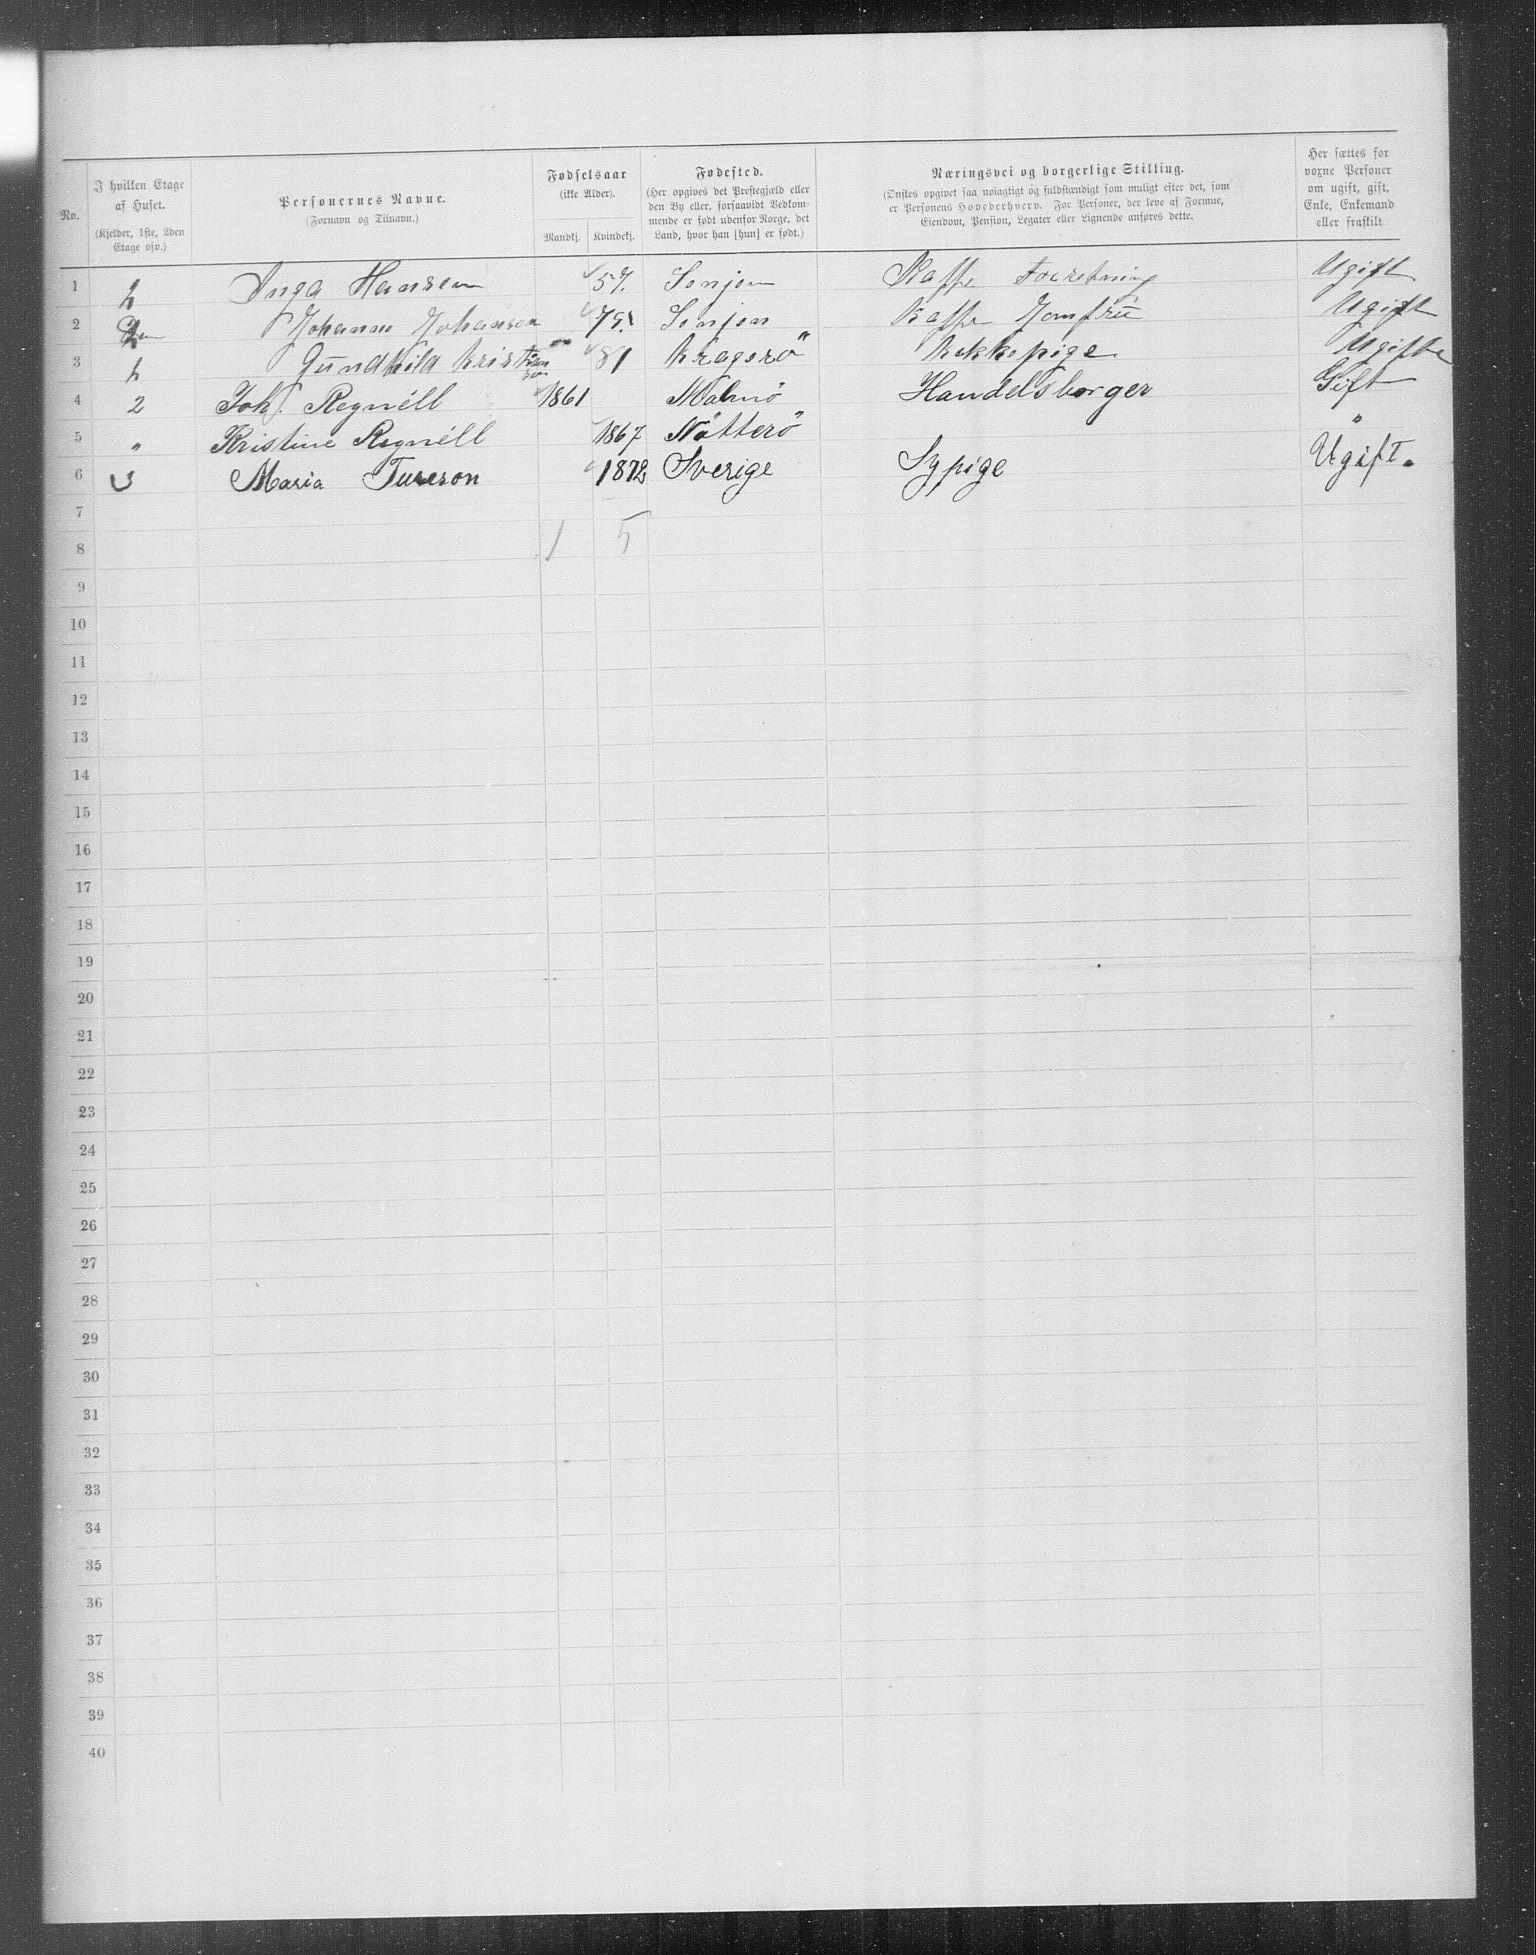 No.
I hvilken Etage
af Huset.
(Kjelder, 1ste, 2den
Etage osv.)
Personernes Navne.
(Fornavn og Tilnavn.)
Fødselsaar
(ikke Alder).
Mandkj. Kvindekj.
Fødested.
(Her opgives det Prestegjæld eller
den By eller, forsaavidt Vedkom-
mende er født udenfor Norge, det
Land, hvor han [hun] er født.)
Næringsvei og borgerlige Stilling.
(Ønskes opgivet saa nøiagtigt og fuldstændigt som muligt efter det, som
er Personens Hovederhverv. For Personer, der leve af Formue,
Eiendom, Pension, Legater eller Lignende anføres dette.
Her sættes for
voxne Personer
om ugift, gift,
Enke, Enkemand
eller fraskilt
1 2 Inga Hansen 57. Sonjon Kaffe Forretning Ugift
2 Johanne Johanson 75. Sonjon Kaffe Jomfrü Ugift
3 2 Gündhild Kristian sen 81 Kragerö Kokkepige Ugifte
4 2 Joh. Regnéll 1861 Malmö Handelsborger Gift
5 " Kristine Regnéll 1867 Nötterö "
6 3 Maria Tureson 1872 Sverige Sypige Ugift.
7
8 1 5
9
10
11
12
13
14
15
16
17
18
19
20
21
22
23
24
25
26
27
28
29
30
31
32
33
34
35
36
37
38
39
40